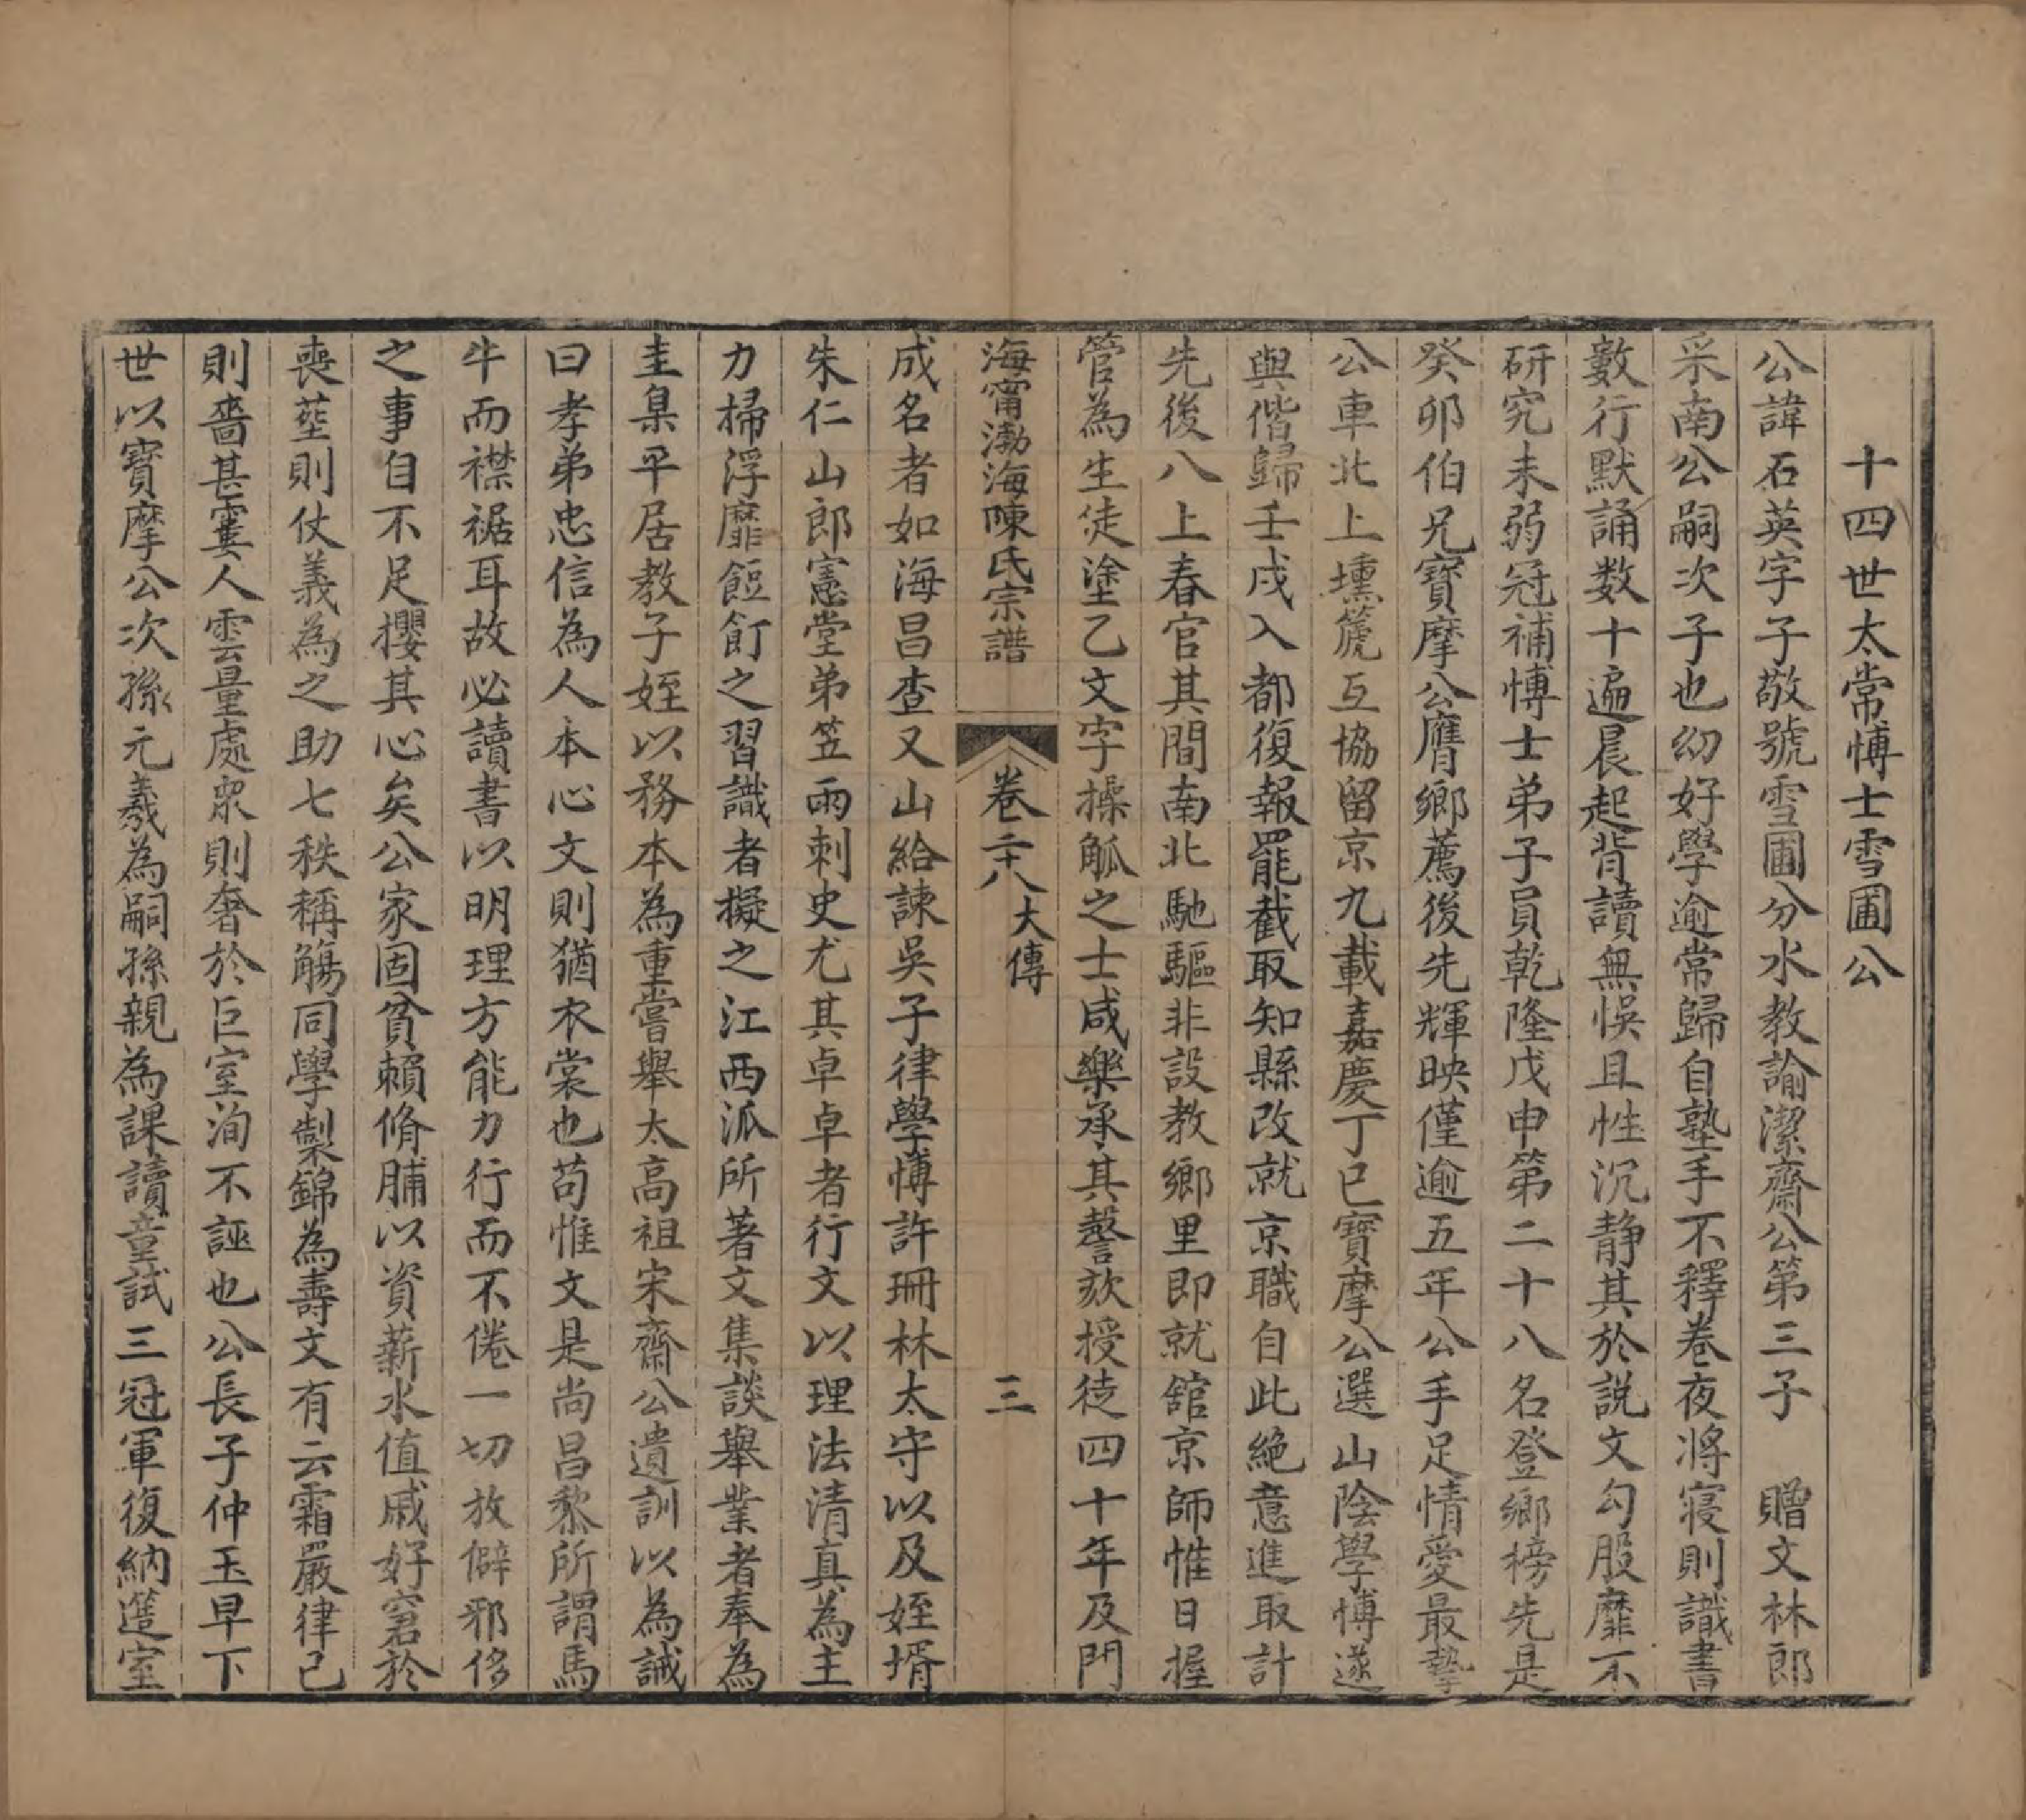 十四世太常博士雪圃公
公諱石英字子敬號雪圃分水教諭潔齋公第三子　贈文林郎
采南公嗣次子也幼好學逾常歸自塾手不釋卷夜將寢則識書
數行默誦数十遍晨起背讀無悞且性沉静其於説文勾股靡不
研究未弱冠補博士弟子員乾隆戊申第二十八名登鄉榜先是
癸卯伯兄寶摩公膺鄉薦後先輝映僅逾五年公手足情愛最摯
公車北上壎篪互協留京九載嘉慶丁巳寶摩公選山陰學博遂
與偕歸壬戌入都復報罷截取知縣改就京職自此絶意進取計
先後八上春官其間南北馳驅非設教鄉里即就舘京師惟日握
管為生徒塗乙文字操觚之士咸樂承其謦欬授徒四十年及門
海甯渤海陳氏宗譜
卷二十八大傳
三
成名者如海昌查又山給諫吳子律學博許珊林太守以及姪壻
朱仁山郎憲堂弟笠雨刺史尤其卓卓者行文以理法清真為主
力掃浮靡餖飣之習識者擬之江西派所著文集談舉業者奉為
圭臬平居教子姪以務本為重嘗舉太高祖宋齋公遺訓以為誡
曰孝弟忠信為人本心文則猶衣裳也苟惟文是尚昌黎所謂馬
牛而襟裾耳故必讀書以明理方能力行而不倦一切放僻邪侈
之事自不足攖其心矣公家固貧賴脩脯以資薪水值戚好窘於
喪塟則仗義為之助七秩稱觴同學製錦為壽文有云霜嚴律己
則嗇甚寠人雲量處眾則奢於巨室洵不誣也公長子仲玉早下
世以寶摩公次孫元羲為嗣孫親為課讀童試三冠軍復納簉室